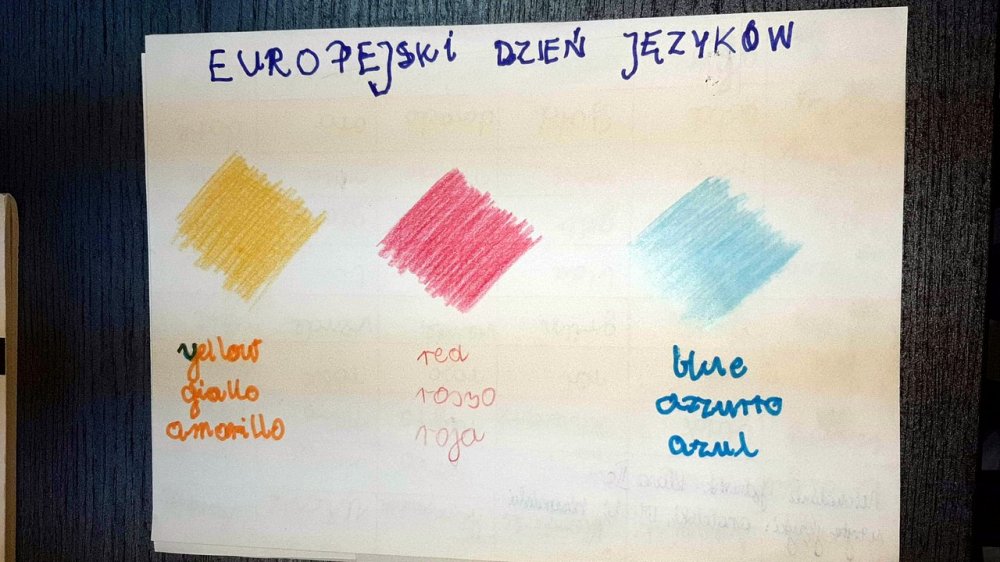 EUROPEJSKI DZIEŃ JĘZYKÓW
yellow
giallo
amarillo
red
rosso
roja
blue
azzurro
azul